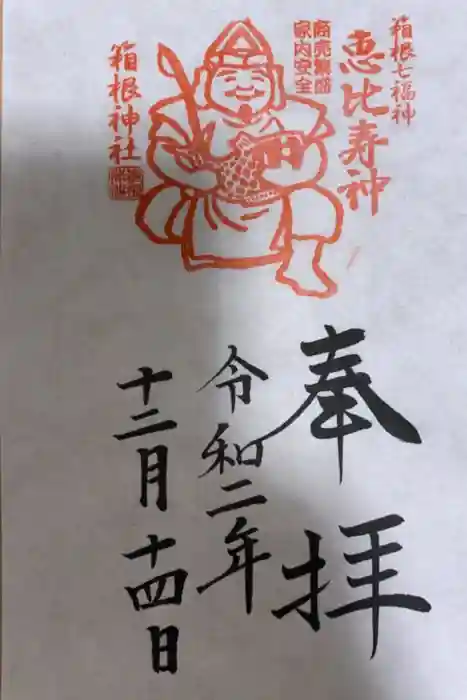 箱根七福神
恵比寿神
商売繁盛
家内安全
箱根神社
奉拝
令和二年
十二月十四日